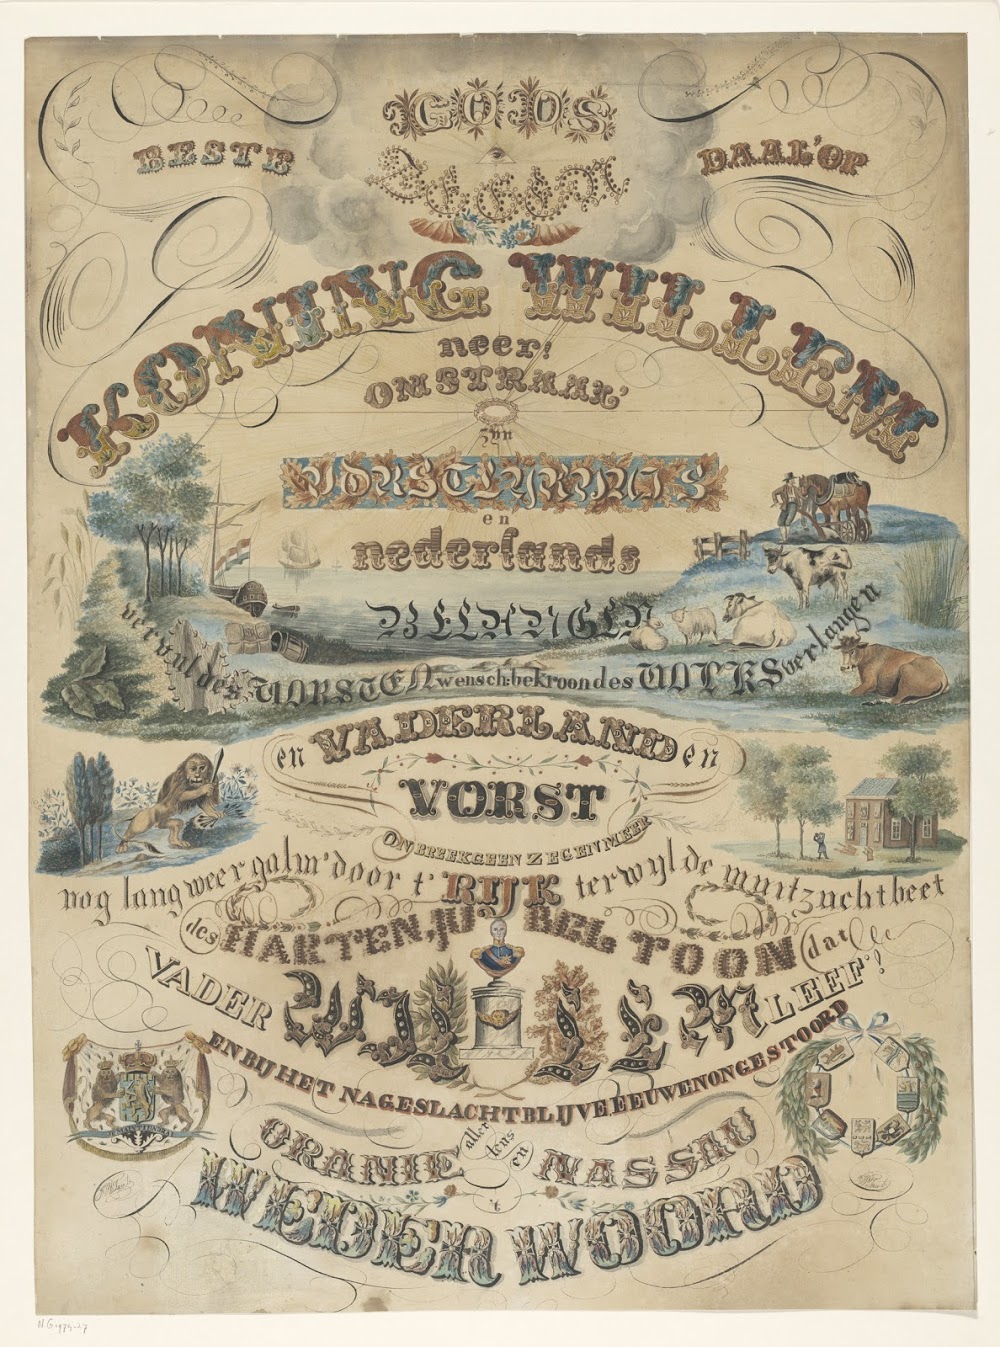 GODS
BESTE ZEGEN DAAL' OP
KONING WILLEM
neer!
OMSTRAAL'
zyn
VORSTLYKHUIS
en
nederlands
BELANGEN
vervul des VORSTEN wensch: bekroon des VOLKS verlangen
en VADERLAND en
VORST
ONTBREEK GEEN ZEGEN MEER
nog lang weergalm' door t' RIJK terwyl de muitzucht beet
des HARTEN, JUBELTOON dat
VADER WILLEM LEEF'!
EN BIJ HET NAGESLACHT BLIJVE EEUWEN ONGESTOORD
ORANJE aller en NASSAU
't
WEDERWOORD
NG 1974-27